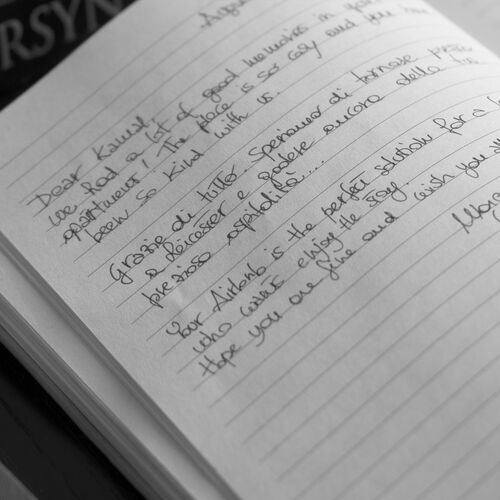 RSYN
Augu
Dear Kamal,
we had a lot of good memories in your
apartment! The place is so cosy and you have
been so kind with us.
Grazie di tutto. Speriamo di tornare presto
a Leicester e godere ancora della tua
preziosa ospitalità...
Your Airbnb is the perfect solution for a
who wants enjoy the stay.
Hope you are fine and wish you